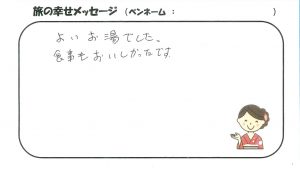 旅の幸せメッセージ (ペンネーム : )
よいお湯でした。
食事もおいしかったです